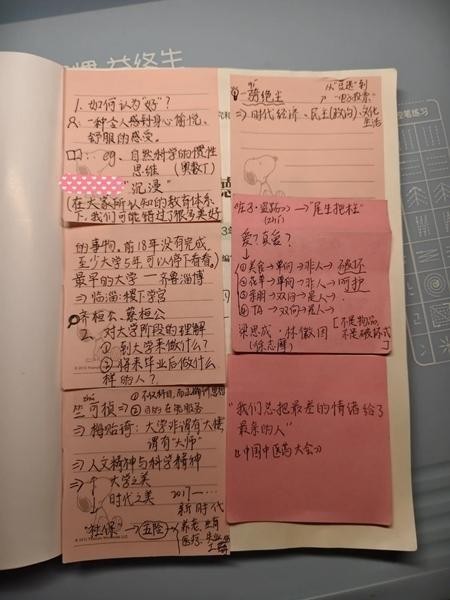 1. 如何认为"好"？
一种令人感到身心愉悦、
舒服的感受。
eg. 自然科学的惯性
思维（奥数丁）
"沉浸"
（在大家所认知的教育体系
下，我们可能错过了很多美好
的事物，前18年没有完成，
至少大学5年可以停下看看。）
最早的大学—齐鲁淄博
⇒临淄：稷下学宫
齐桓公、蔡桓公
2. 对大学阶段的理解
① 到大学来做什么？
② 将来毕业后做什么
样的人？
zhú
竺可桢⇒
① 不仅科目，而
② 
⇒梅贻琦：大学非谓有大楼
谓有"大师"
⇒人文精神与科学精神
⇒ 大学之美
时代之美
2017—…
新时代
"社保"→五险
养老、生育
医疗、失业
工伤
qí
一骑绝尘
从"豆选"到
"电子投票"
⇒时代经济、民主（政治）、文化
生活
→"尾生抱柱"
爱？真爱？
↓
① 美食→单向→非人→破坏
② 花草→单向→非人→呵护
③ 亲朋→双向→是人→
④ TA→双向→是人→
梁思成·林徽因
（徐志摩）
[不是物品，
不是破坏式]
"我们总把最差的情绪给了
最亲的人"
《中国中医药大会》
益终生
笔练习